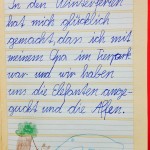 In den Winterferien
hat mich glücklich
gemacht, dass ich mit
meinem Opa im Tierpark
war und wir haben
uns die Elefanten ange-
guckt und die Affen.